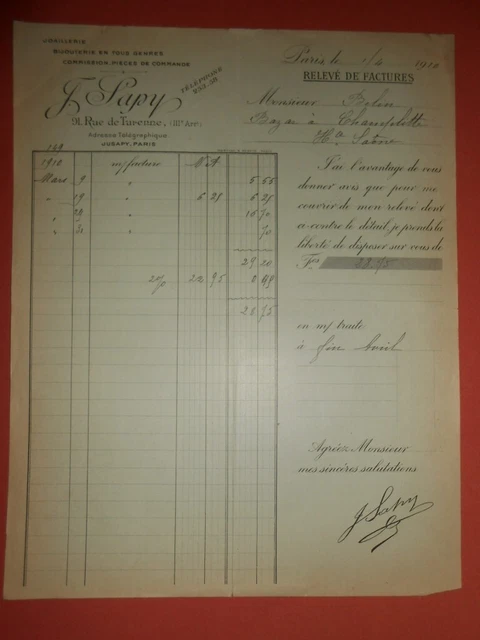 JOAILLERIE
BIJOUTERIE EN TOUS GENRES
COMMISSION, PIECES DE COMMANDE
J. Sapy
TÉLÉPHONE
91, Rue de Turenne, (IIIe Arrt)
Adresse Télégraphique
JUSAPY, PARIS
169
1910 m/facture N.A
Mars 9 " 5 55
" 19 " 6 25 6 25
" " 16 70
" 31 " 70
29 20
2% 22 95
28 75
Paris le 1/4 1910
RELEVÉ DE FACTURES
Monsieur Belin
Bazar à Champlitte
Hte Saône
J'ai l'avantage de vous
donner avis que pour me
couvrir de mon relevé dont
ci-contre le détail, je prends la
liberté de disposer sur vous de
Fcs 28.75
en m/ traite
à fin Avril
Agréez Monsieur
mes sincères salutations
J Sapy